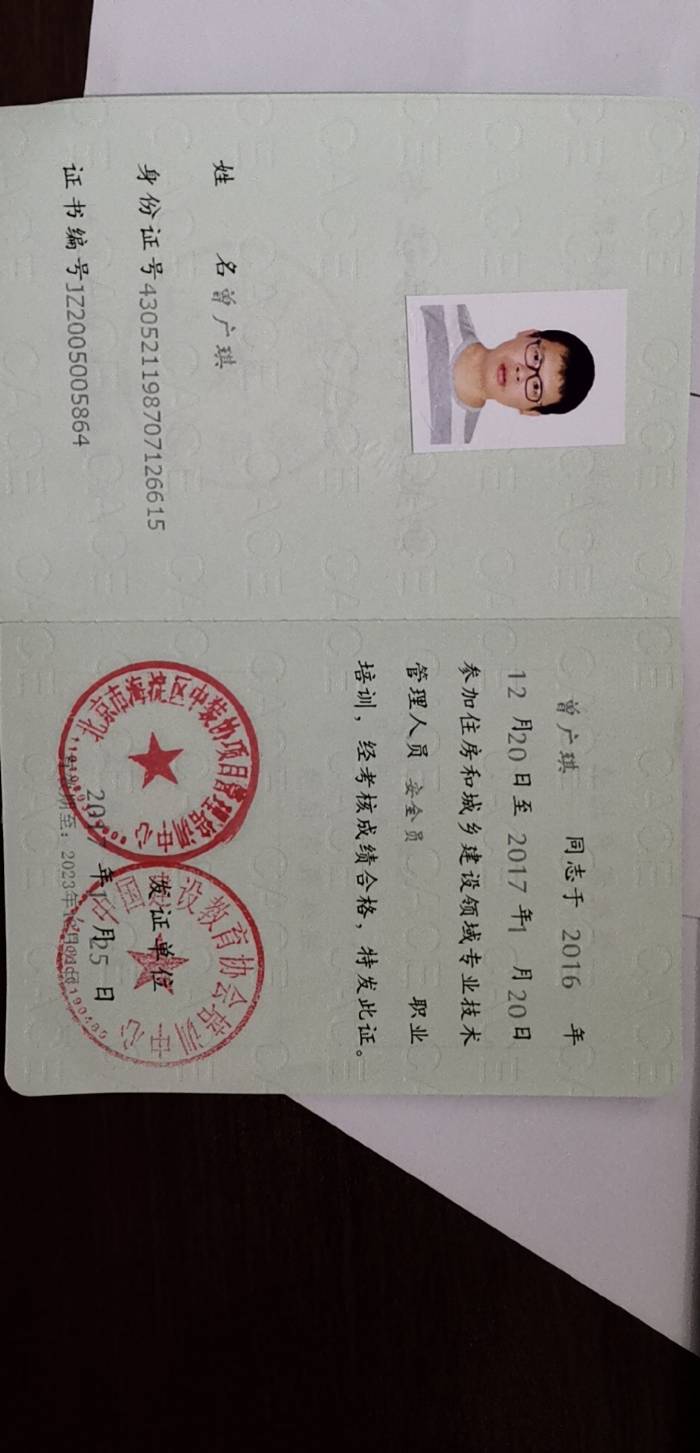 姓 名曾广琪
身份证号430521198707126615
证书编号JZ2005005864
曾广琪 同志于 2016 年
12 月20 日至 2017 年1 月 20 日
参加住房和城乡建设领域专业技术
管理人员 安全员 职业
培训，经考核成绩合格，特发此证。
北京市海淀区中装协项目管理培训中心
中国建设教育协会培训中心
发证单位
2017 年1 月25 日